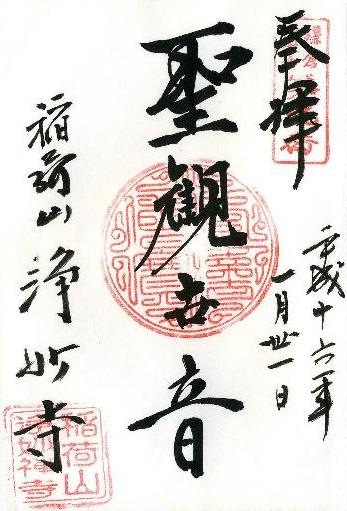 奉拝
平成十六年
一月卅一日
聖觀世音
稲荷山 浄妙寺
稲荷山
浄妙禅寺